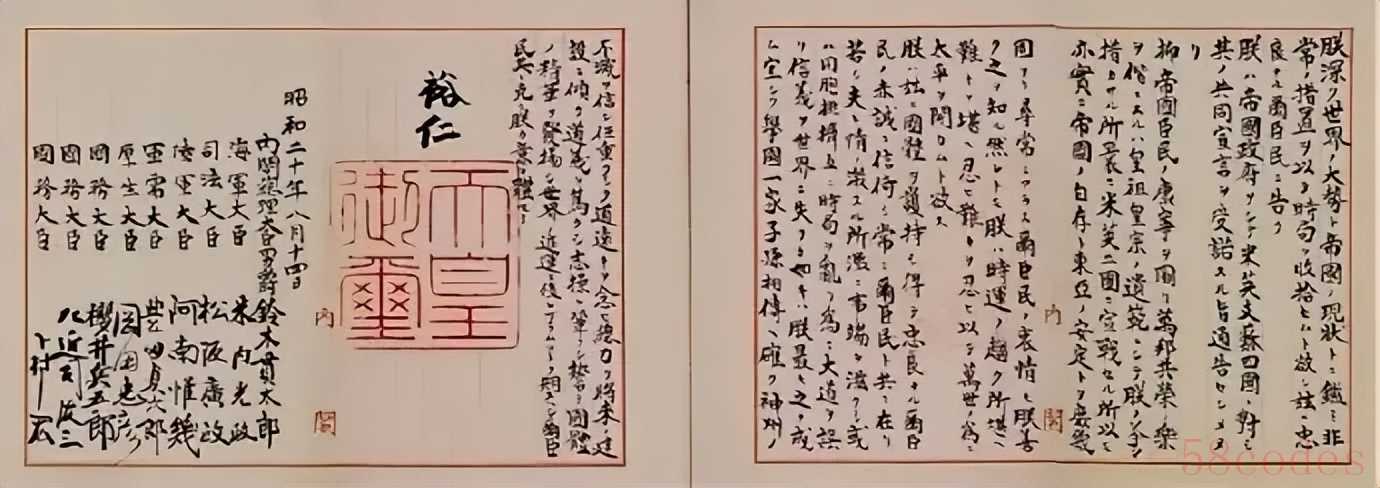 朕深ク世界ノ大勢ト帝國ノ現狀トニ鑑ミ非
常ノ措置ヲ以テ時局ヲ收拾セムト欲シ茲ニ忠
良ナル爾臣民ニ告ク
朕ハ帝國政府ヲシテ米英支蘇四國ニ對シ
其ノ共同宣言ヲ受諾スル旨通告セシメタ
リ
抑帝國臣民ノ康寧ヲ圖リ萬邦共榮ノ樂
ヲ偕ニスルハ皇祖皇宗ノ遺範ニシテ朕ノ拳々
措カサル所曩ニ米英二國ニ宣戰セル所以モ
亦實ニ帝國ノ自存ト東亞ノ安定トヲ庶幾
內閣
固ヨリ尋常ニアラス爾臣民ノ衷情モ朕善
ク之ヲ知ル然レトモ朕ハ時運ノ趨ク所堪ヘ
難キヲ堪ヘ忍ヒ難キヲ忍ヒ以テ萬世ノ爲ニ
太平ヲ開カムト欲ス
朕ハ茲ニ國體ヲ護持シ得テ忠良ナル爾臣
民ノ赤誠ニ信倚シ常ニ爾臣民ト共ニ在リ
若シ夫レ情ノ激スル所濫ニ事端ヲ滋クシ或
ハ同胞排擠互ニ時局ヲ亂リ爲ニ大道ヲ誤
リ信義ヲ世界ニ失フカ如キハ朕最モ之ヲ戒
ム宜シク擧國一家子孫相傳ヘ確ク神州ノ
不滅ヲ信シ任重クシテ道遠キヲ念ヒ總力ヲ將來ノ建
設ニ傾ケ道義ヲ篤クシ志操ヲ鞏クシ誓テ國體
ノ精華ヲ發揚シ世界ノ進運ニ後レサラムコトヲ期スヘシ爾臣
民其レ克ク朕カ意ヲ體セヨ
裕仁
天皇
御璽
內閣
昭和二十年八月十四日
內閣總理大臣男爵 鈴木貫太郎
海軍大臣 米內光政
司法大臣 松阪廣政
陸軍大臣 阿南惟幾
軍需大臣 豐田貞次郎
厚生大臣 岡田忠彥
國務大臣 櫻井兵五郎
國務大臣 左近司政三
國務大臣 下村宏
58codes